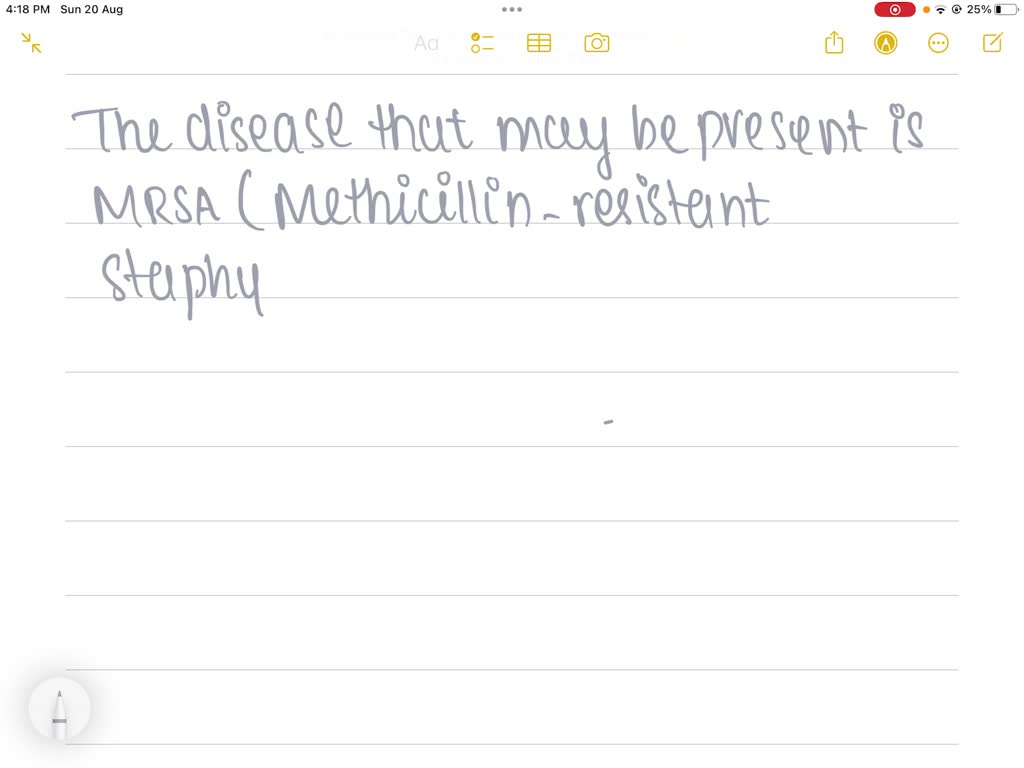 4:18 PM Sun 20 Aug
25%
Aa
The disease that may be present is
MRSA (Methicillin-resistant
staphy